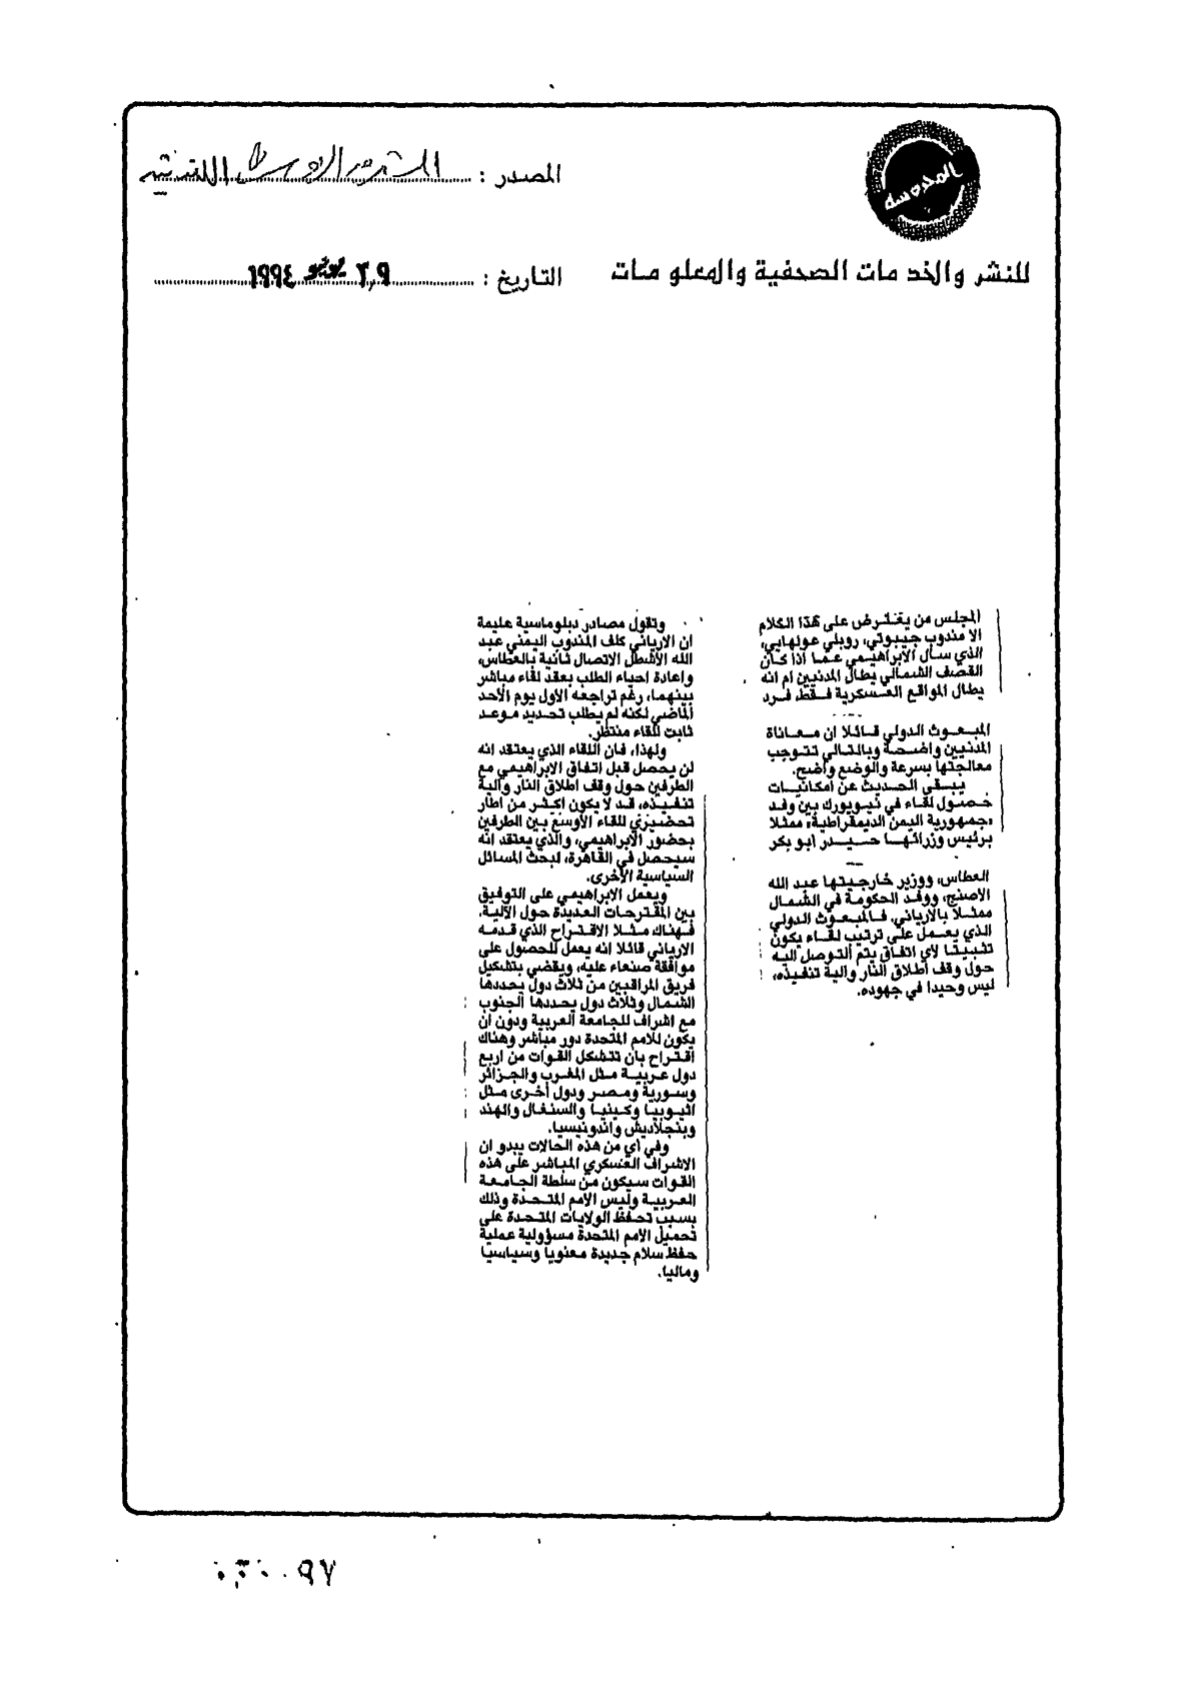 المصدر : الشرق الاوسط اللندنية
المدرسة
للنشر والخدمات الصحفية والمعلومات
التاريخ : ٢٩ يونيو ١٩٩٤
المجلس من يعترض على هذا الكلام
الا مندوب جيبوتي، روبلي عولهايي،
الذي سأل الابراهيمي عما اذا كان
القصف الشمالي يطال المدنيين ام انه
يطال المواقع العسكرية فقط، فرد
المبعوث الدولي قائلا ان معاناة
المدنيين واضحة وبالتالي تتوجب
معالجتها بسرعة والوضع واضح.
يبقى الحديث عن امكانيات
حصول لقاء في نيويورك بين وفد
«جمهورية اليمن الديمقراطية» ممثلا
برئيس وزرائها حيدر ابو بكر
العطاس، ووزير خارجيتها عبد الله
الاصنج، ووفد الحكومة في الشمال
ممثلا بالارياني، فالمبعوث الدولي
الذي يعمل على ترتيب لقاء يكون
تثبيتا لأي اتفاق يتم التوصل اليه
حول وقف اطلاق النار والية تنفيذه،
ليس وحيدا في جهوده.
وتقول مصادر دبلوماسية عليمة
ان الارياني كلف المندوب اليمني عبد
الله الأشطل الاتصال ثانية بالعطاس،
واعادة احياء الطلب بعقد لقاء مباشر
بينهما، رغم تراجعه الاول يوم الاحد
الماضي لكنه لم يطلب تحديد موعد
ثابت للقاء منتظر.
ولهذا، فان اللقاء الذي يعتقد انه
لن يحصل قبل اتفاق الابراهيمي مع
الطرفين حول وقف اطلاق النار والية
تنفيذه، قد لا يكون اكثر من اطار
تحضيري للقاء الأوسع بين الطرفين
بحضور الابراهيمي، والذي يعتقد انه
سيحصل في القاهرة، لبحث المسائل
السياسية الأخرى.
ويعمل الابراهيمي على التوفيق
بين المقترحات العديدة حول الآلية.
فهناك مثلا الاقتراح الذي قدمه
الارياني قائلا انه يعمل للحصول على
موافقة صنعاء عليه، ويقضي بتشكيل
فريق المراقبين من ثلاث دول يحددها
الشمال وثلاث دول يحددها الجنوب
مع اشراف للجامعة العربية ودون ان
يكون للامم المتحدة دور مباشر وهناك
اقتراح بان تتشكل القوات من اربع
دول عربية مثل المغرب والجزائر
وسورية ومصر ودول أخرى مثل
اثيوبيا وكينيا والسنغال والهند
وبنجلاديش واندونيسيا.
وفي أي من هذه الحالات يبدو ان
الاشراف العسكري المباشر على هذه
القوات سيكون من سلطة الجامعة
العربية وليس الامم المتحدة وذلك
بسبب تحفظ الولايات المتحدة على
تحميل الامم المتحدة مسؤولية عملية
حفظ سلام جديدة معنويا وسياسيا
وماليا.